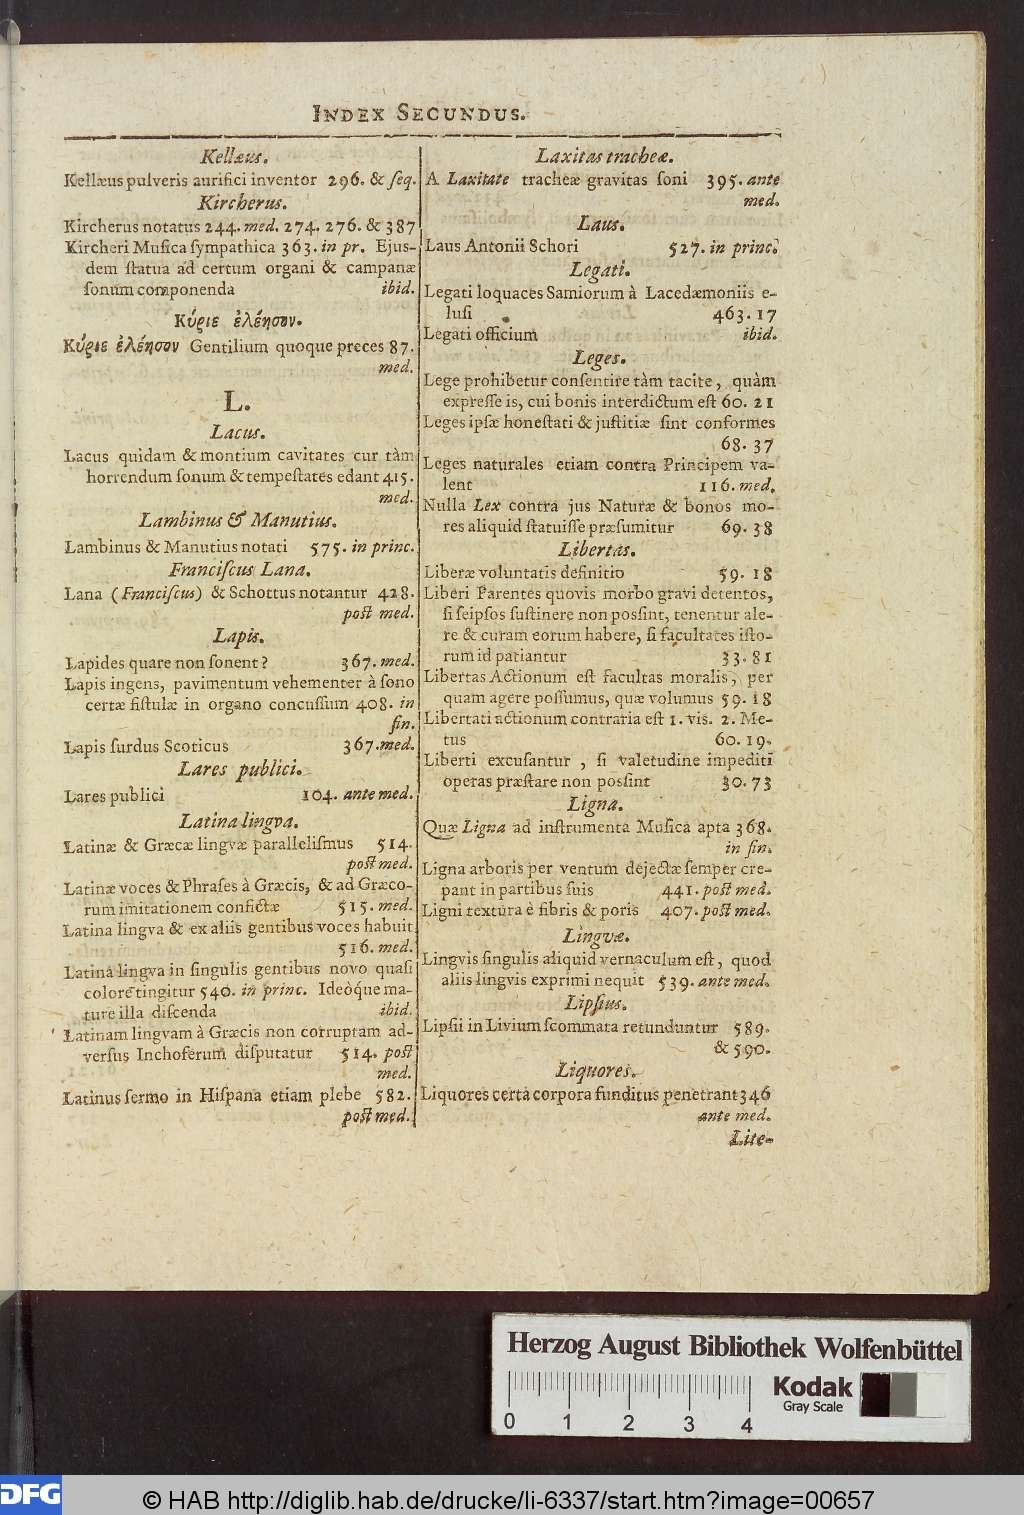 INDEX SECUNDUS.
Kellæus.
Kellæus pulveris aurifici inventor 296. & ſeq.
Kircherus.
Kircherus notatus 244. med. 274. 276. & 387
Kircheri Muſica ſympathica 363. in pr. Ejus-
dem ſtatua ad certum organi & campanæ
ſonum componenda ibid.
Κύριε ἐλέησον.
Κύριε ἐλέησον Gentilium quoque preces 87.
med.
L.
Lacus.
Lacus quidam & montium cavitates cur tàm
horrendum ſonum & tempeſtates edant 415.
med.
Lambinus & Manutius.
Lambinus & Manutius notati 575. in princ.
Franciſcus Lana.
Lana (Franciſcus) & Schottus notantur 428.
poſt med.
Lapis.
Lapides quare non ſonent? 367. med.
Lapis ingens, pavimentum vehementer à ſono
certæ fiſtulæ in organo concuſſum 408. in
fin.
Lapis ſurdus Scoticus 367. med.
Lares publici.
Lares publici 104. ante med.
Latina lingva.
Latinæ & Græcæ lingvæ parallelifmus 514.
poſt med.
Latinæ voces & Phraſes à Græcis, & ad Græco-
rum imitationem confictæ 515. med.
Latina lingva & ex aliis gentibus voces habuit
516. med.
Latina lingva in ſingulis gentibus novo quaſi
colore tingitur 540. in princ. Ideòque ma-
ture illa diſcenda ibid.
Latinam lingvam à Græcis non corruptam ad-
verſus Inchoferum diſputatur 514. poſt
med.
Latinus ſermo in Hiſpana etiam plebe 582.
poſt med.
Laxitas tracheæ.
A Laxitate tracheæ gravitas ſoni 395. ante
med.
Laus.
Laus Antonii Schori 527. in princ.
Legati.
Legati loquaces Samiorum à Lacedæmoniis e-
luſi 463. 17
Legati officium ibid.
Leges.
Lege prohibetur conſentire tàm tacite, quàm
expreſſe is, cui bonis interdictum eſt 60. 21
Leges ipſæ honeſtati & juſtitiæ ſint conformes
68. 37
Leges naturales etiam contra Principem va-
lent 116. med.
Nulla Lex contra jus Naturæ & bonos mo-
res aliquid ſtatuiſſe præſumitur 69. 38
Libertas.
Liberæ voluntatis definitio 59. 18
Liberi Parentes quovis morbo gravi detentos,
ſi ſeipſos ſuſtinere non poſſint, tenentur ale-
re & curam eorum habere, ſi facultates iſto-
rum id patiantur 33. 81
Libertas Actionum eſt facultas moralis, per
quam agere poſſumus, quæ volumus 59. 18
Libertati actionum contraria eſt 1. vis. 2. Me-
tus 60. 19.
Liberti excuſantur, ſi valetudine impediti
operas præſtare non poſſint 30. 73
Ligna.
Quæ Ligna ad inſtrumenta Muſica apta 368.
in fin.
Ligna arboris per ventum dejectæ ſemper cre-
pant in partibus ſuis 441. poſt med.
Ligni textura è fibris & poris 407. poſt med.
Lingvæ.
Lingvis ſingulis aliquid vernaculum eſt, quod
aliis lingvis exprimi nequit 539. ante med.
Lipſius.
Lipſii in Livium ſcommata retunduntur 589.
& 590.
Liquores.
Liquores certa corpora funditus penetrant 346
ante med.
Lite-
Herzog August Bibliothek Wolfenbüttel
Kodak
Gray Scale
0 1 2 3 4
DFG
© HAB http://diglib.hab.de/drucke/li-6337/start.htm?image=00657